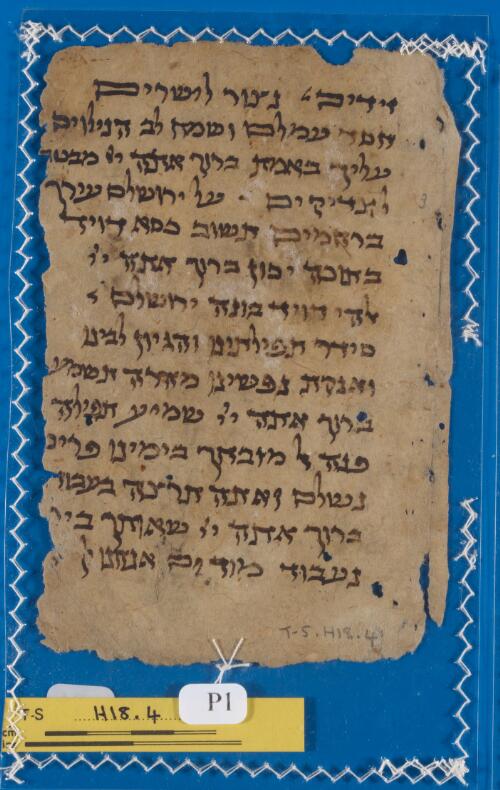 זידים נצור לישרים
חסד עמלם ושמח לב הנילוים
עליך באמת ברוך אתה יי מבטח
לצדיקים על ירושלם עירך
ברחמים תשוב כסא דויד
בתוכה יכון ברוך אתה יי
אלהי דויד בונה ירושלם
סידר תפילתינו והגיון לבינו
ואנקת נפשינו מהרה תשמע
ברוך אתה יי שמיע תפילה
פנה ל מזבחך בימינו פרים
נשלם ואתה תרצה בעבוד
ברוך אתה יי שאותך ביר
נעבוד מודים אנחנו ל
T-S. H18.4
3
T-S H18.4
P1